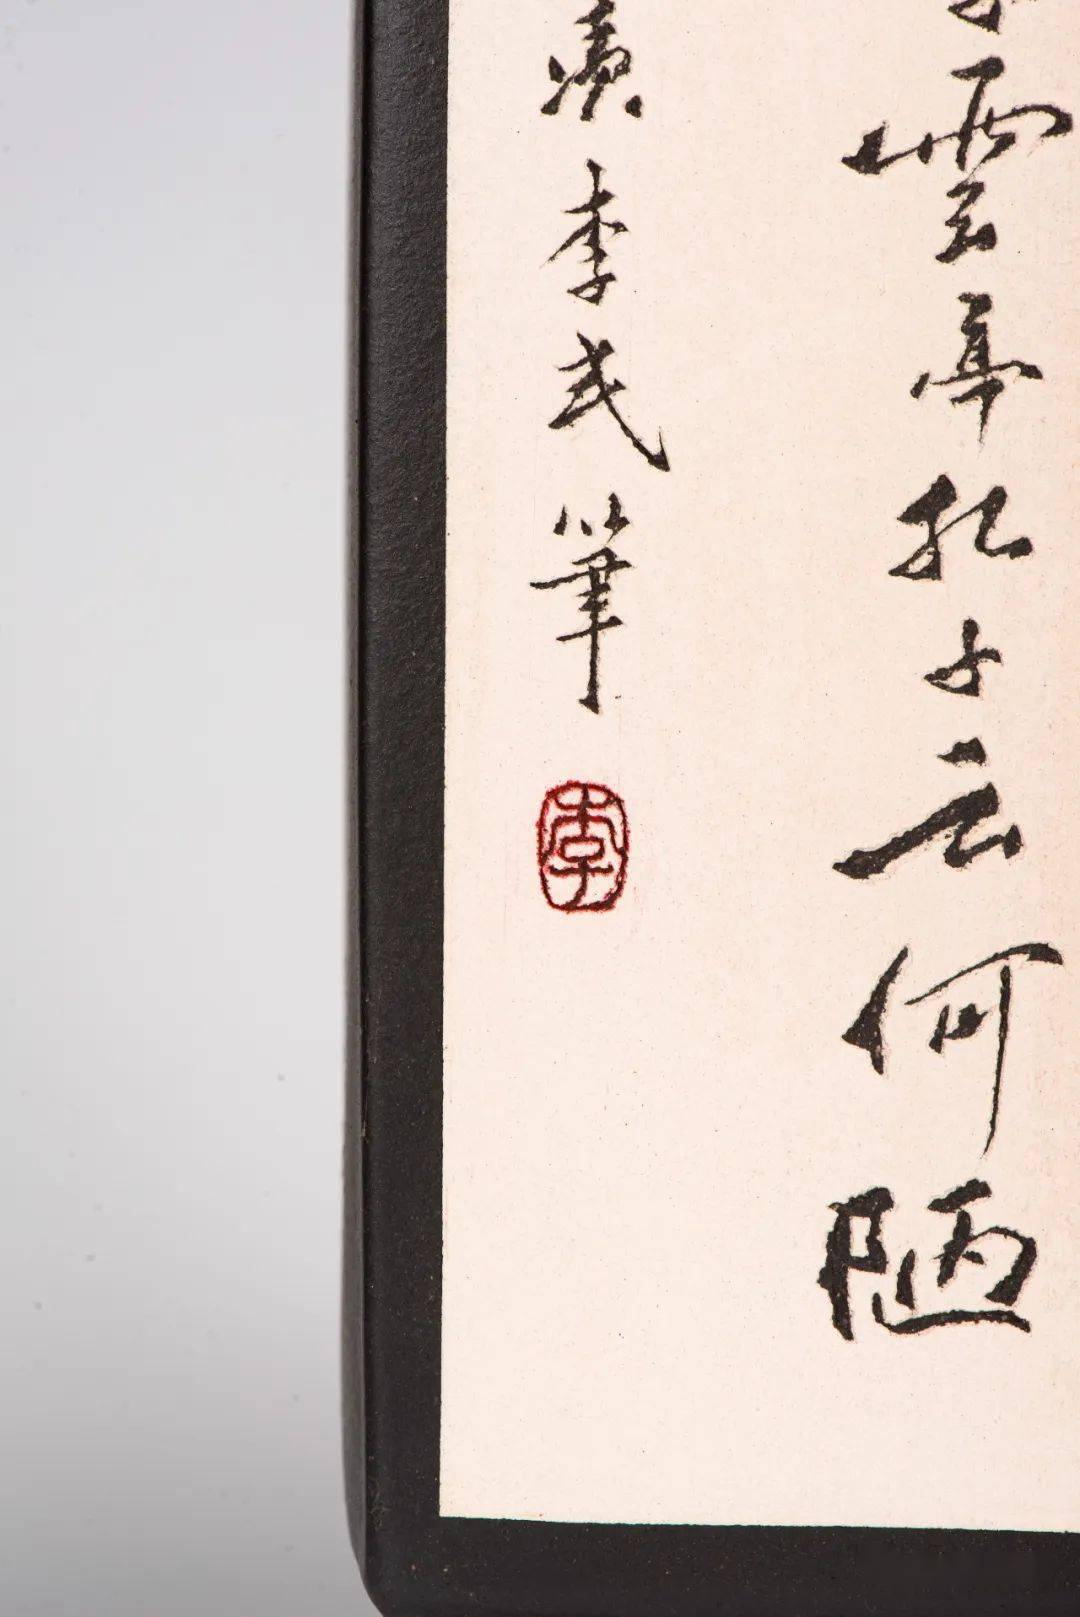 雲亭孔子云何陋
李武筆
李